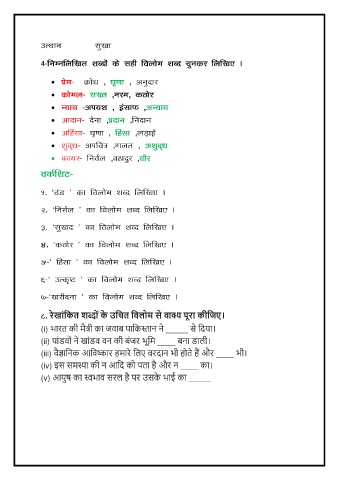 उत्थान सुखा
4-निम्नलिखित शब्दों के सही विलोम शब्द चुनकर लिखिए ।
• प्रेम- क्रोध , घृणा , अनुदार
• कोमल- सख्त ,नरम, कठोर
• न्याय -अपयश , इंसाफ ,अन्याय
• आदान- देना ,प्रदान ,निदान
• अहिंसा- घृणा , हिंसा ,लड़ाई
• शुद्ध- अपवित्र ,गलत , अशुद्ध
• कायर- निर्बल ,बहादुर ,वीर
वर्कशिट-
१. 'ठंड ' का विलोम शब्द लिखिए ।
२. 'निर्मल ' का विलोम शब्द लिखिए ।
३. 'सुखद ' का विलोम शब्द लिखिए ।
४. 'कठोर ' का विलोम शब्द लिखिए ।
५-' हिंसा ' का विलोम शब्द लिखिए ।
६-' उत्कृष्ट ' का विलोम शब्द लिखिए ।
७-'खरीदना ' का विलोम शब्द लिखिए ।
८. रेखांकित शब्दों के उचित विलोम से वाक्य पूरा कीजिए।
(i) भारत की मैत्री का जवाब पाकिस्तान ने _____ से दिया।
(ii) पांडवों ने खांडव वन की बंजर भूमि ____ बना डाली।
(iii) वैज्ञानिक आविष्कार हमारे लिए वरदान भी होते हैं और ____ भी।
(iv) इस समस्या की न आदि को पता है और न ____ का।
(v) आयुष का स्वभाव सरल है पर उसके भाई का _____